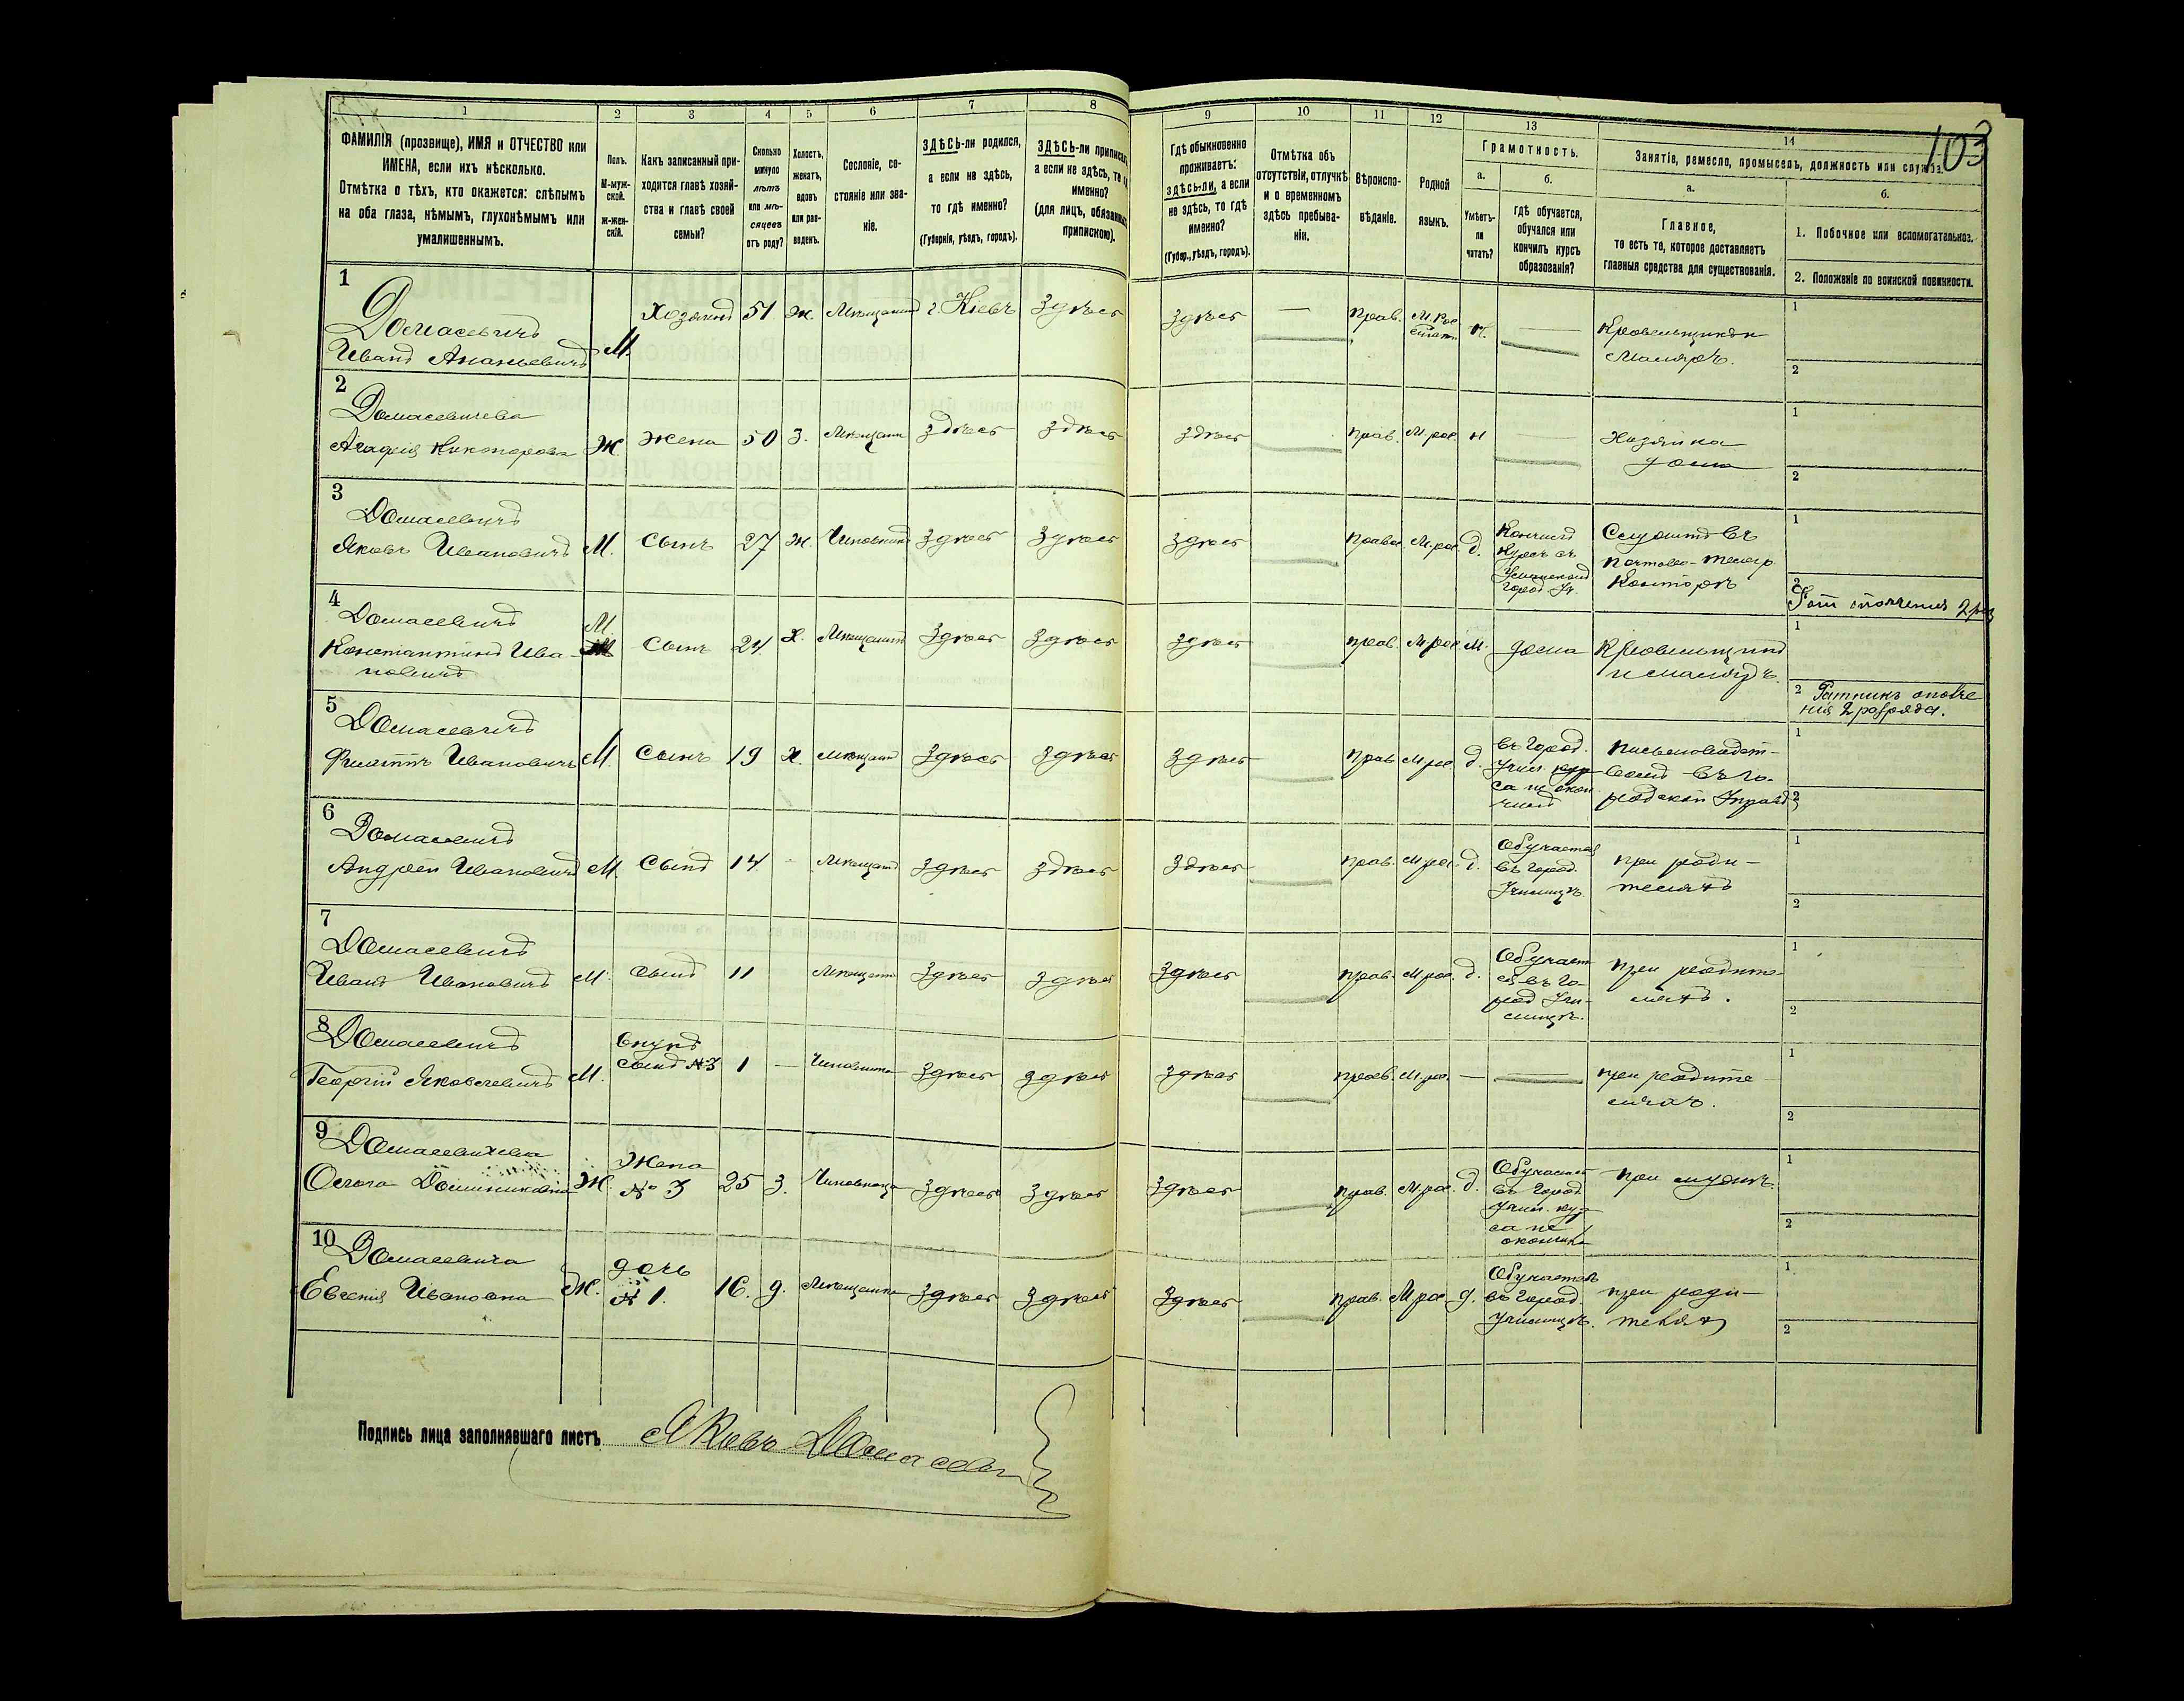 103
1 2 3 4 5 6 7 8 9 10 11 12 13 14
ФАМИЛІЯ (прозвище), ИМЯ и ОТЧЕСТВО или
ИМЕНА, если ихъ нѣсколько.
Отмѣтка о тѣхъ, кто окажется: слѣпымъ
на оба глаза, нѣмымъ, глухонѣмымъ или
умалишеннымъ.
Полъ.
М-муж-
ской.
Ж-жен-
скій.
Какъ записанный при-
ходится главѣ хозяй-
ства и главѣ своей
семьи?
Сколько
минуло
лѣтъ
или мѣ-
сяцевъ
отъ роду?
Холостъ,
женатъ,
вдовъ
или раз-
веденъ.
Сословіе, со-
стояніе или зва-
ніе.
ЗДѢСЬ-ли родился,
а если не здѣсь,
то гдѣ именно?
(Губернія, уѣздъ, городъ).
ЗДѢСЬ-ли приписанъ,
а если не здѣсь, то гдѣ
именно?
(для лицъ, обязанныхъ
припискою).
Гдѣ обыкновенно
проживаетъ:
здѣсь-ли, а если
не здѣсь, то гдѣ
именно?
(Губер., уѣздъ, городъ).
Отмѣтка объ
отсутствіи, отлучкѣ
и о временномъ
здѣсь пребыва-
ніи.
Вѣроиспо-
вѣданіе.
Родной
языкъ.
Грамотность.
а.
Умѣетъ-
ли
читать?
б.
гдѣ обучается,
обучался или
кончилъ курсъ
образованія?
Занятіе, ремесло, промыселъ, должность или служба.
а.
Главное,
то есть то, которое доставляетъ
главныя средства для существованія.
б.
1. Побочное или вспомогательное.
2. Положеніе по воинской повинности.
1
Домасевичъ
Иванъ Ананьевичъ
М. Хозяинъ 51 ж. Мѣщанинъ г. Кіевъ Здѣсь Здѣсь — Прав. М. Рос н. — Кровельщикъ и
Маляръ.
1
2
2
Домасевичева
Агафія Никонорова
Ж. Жена 50 З. Мѣщанк здѣсь здѣсь здѣсь прав. М. рос. н — Хозяйка
дома
1
2
3
Домасевичъ
Яковъ Ивановичъ
М. Сынъ 27 ж. Чиновникъ Здѣсь Здѣсь Здѣсь Прав. М. рос д.
Кончилъ
Курсъ въ
Уманском
Город Уч.
Служитъ въ
почтово-телегр.
Конторѣ
1
2
Рат ополченія 2 раз
4
Домасевичъ
Константинъ Ива-
новичъ
М.
Сынъ 24 х. Мѣщанинъ Здѣсь Здѣсь Здѣсь прав. М. рос м. дома
Кровельщикъ
и маляръ.
1
2 Ратникъ ополче
нія 2 разряда.
5
Домасевичъ
Филиппъ Ивановичъ
М. Сынъ 19 х. Мѣщанин Здѣсь Здѣсь Здѣсь Прав М рос д.
въ город.
учил. кур-
са не окон
чилъ
письмоводит-
елемъ въ го-
родской Управѣ
1
2
6
Домасевичъ
Андрей Ивановичъ
М. Сынъ 14 Мѣщанин Здѣсь здѣсь Здѣсь прав. М рос. д.
Обучается
въ город.
Училищѣ.
при роди-
теляхъ
1
2
7
Домасевичъ
Иванъ Ивановичъ
М. Сынъ 11 Мѣщанин Здѣсь Здѣсь Здѣсь прав. М рос. д.
Обучает
ся въ го-
род Учи-
лищѣ.
при родите-
ляхъ.
1
2
8
Домасевичъ
Георгій Яковлевичъ
М.
внукъ
сынъ №3
1 — Чиновника Здѣсь здѣсь Здѣсь прав. М. рос. — —
при родите
ляхъ.
1
2
9
Домасевичева
Ольга Доминиковна
Ж.
Жена
№ 3
25 З. Чиновница Здѣсь Здѣсь Здѣсь прав. М. рос. д.
Обучалась
въ город
учил. кур-
са не
окончила
при мужѣ.
1
2
10
Домасевича
Евгенія Ивановна
Ж.
дочь
№ 1.
16. д. Мѣщанка Здѣсь Здѣсь Здѣсь прав. М рос д.
Обучается
въ город.
училищѣ.
при роди-
теляхъ
1
2
Подпись лица заполнявшаго листъ Яковъ Домасевичъ